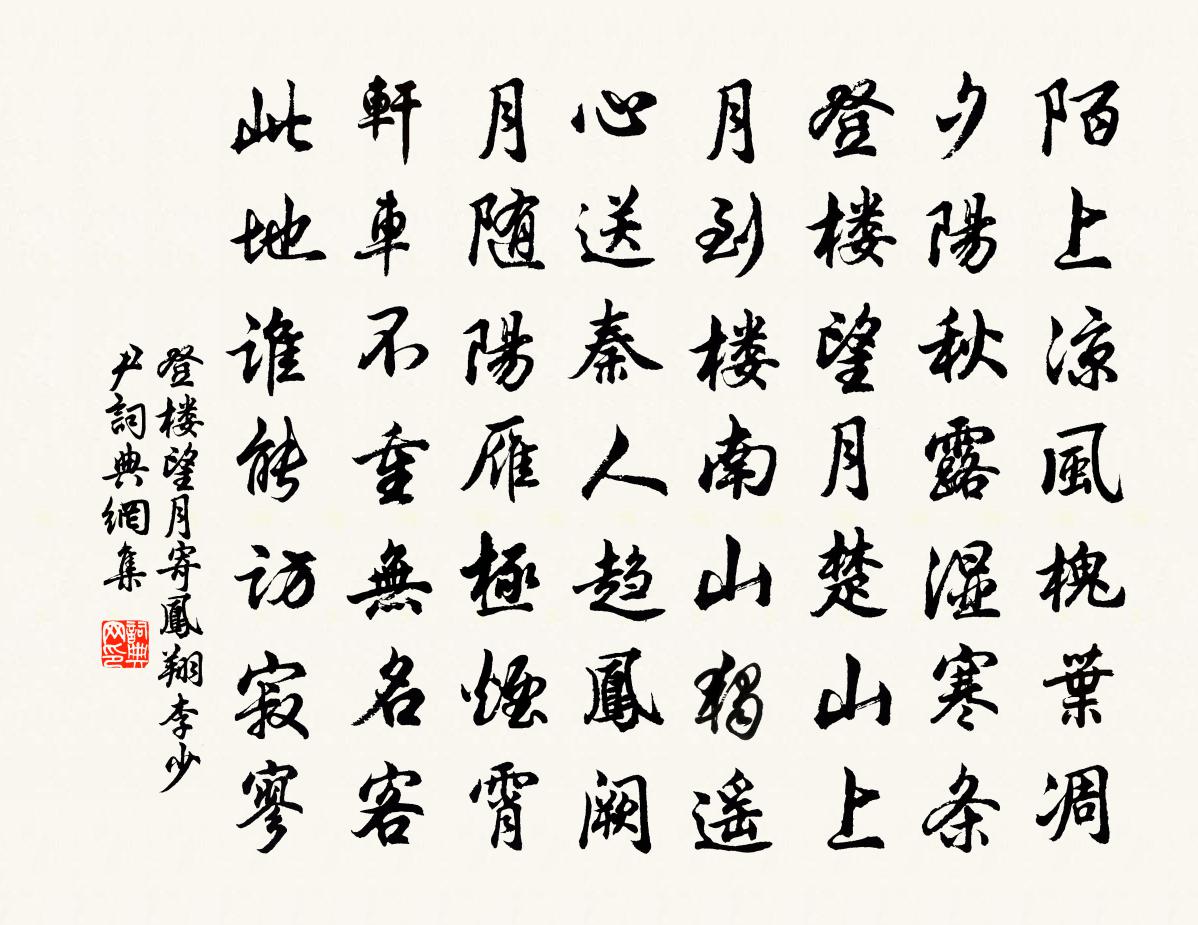 陌上涼風槐葉凋
夕陽秋露濕寒条
登楼望月楚山上
月到楼南山獨遥
心送秦人趋鳳阙
月随陽雁極煙霄
軒車不重無名客
此地谁能访寂寥
登楼望月寄鳳翔李少
尹詞典網集
詞典
网印